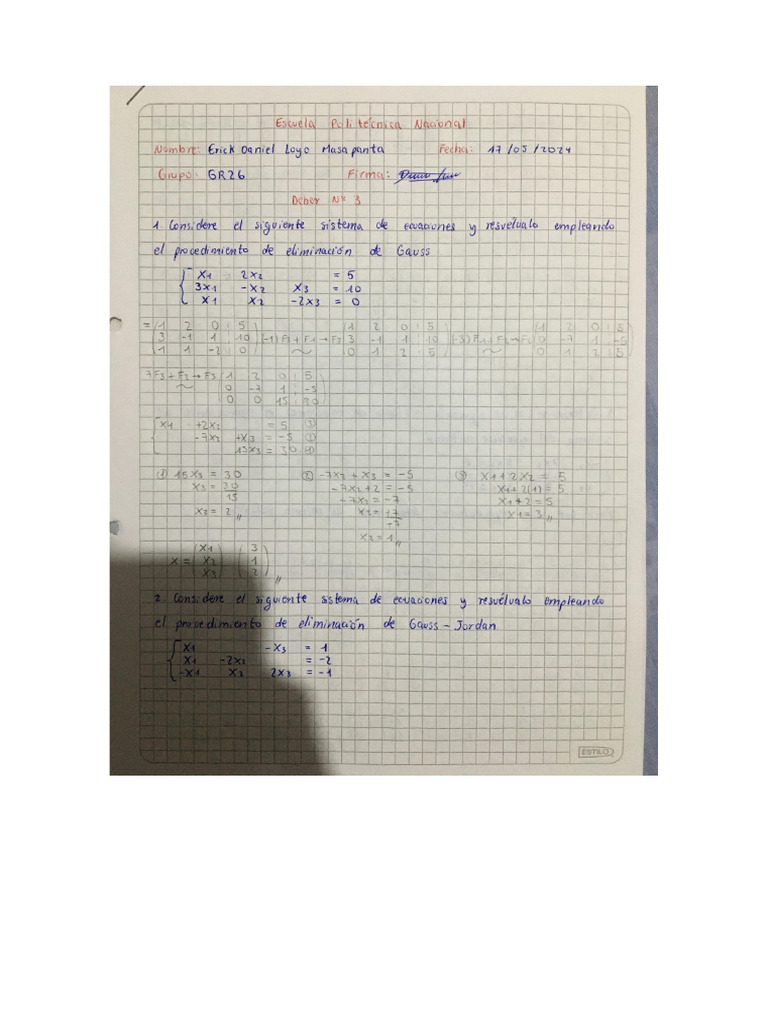 Escuela Politécnica Nacional
Nombre: Erick Daniel Loyo Masapanta Fecha: 17/05/2024
Grupo: GR26 Firma:
Deber N° 3
1. Considere el siguiente sistema de ecuaciones y resuélvalo empleando
el procedimiento de eliminación de Gauss
x1 2x2 = 5
3x1 -x2 x3 = 10
x1 x2 -2x3 = 0
= 1 2 0 5 1 2 0 5 1 2 0 5
3 -1 1 10 (-1) F3 + F1 → F3 3 -1 1 10 (-3) F1 + F2 → F2 0 -7 1 -5
1 1 -2 0 ~ 0 1 2 5 ~ 0 1 2 5
7F3 + F2 → F3 1 2 0 5
~ 0 -7 1 -5
0 0 15 30
x1 +2x2 = 5 ③
-7x2 +x3 = -5 ②
15x3 = 30 ①
① 15x3 = 30 ② -7x2 + x3 = -5 ③ x1 + 2x2 = 5
x3 = 30 -7x2 + 2 = -5 x1 + 2(1) = 5
15 -7x2 = -7 x1 + 2 = 5
x3 = 2 x2 = -7 x1 = 3
-7
x2 = 1
x = x1 3
x2 1
x3 2
2. Considere el siguiente sistema de ecuaciones y resuélvalo empleando
el procedimiento de eliminación de Gauss - Jordan
x1 -x3 = 1
x1 -2x2 = -2
-x1 x2 2x3 = -1
ESTILO